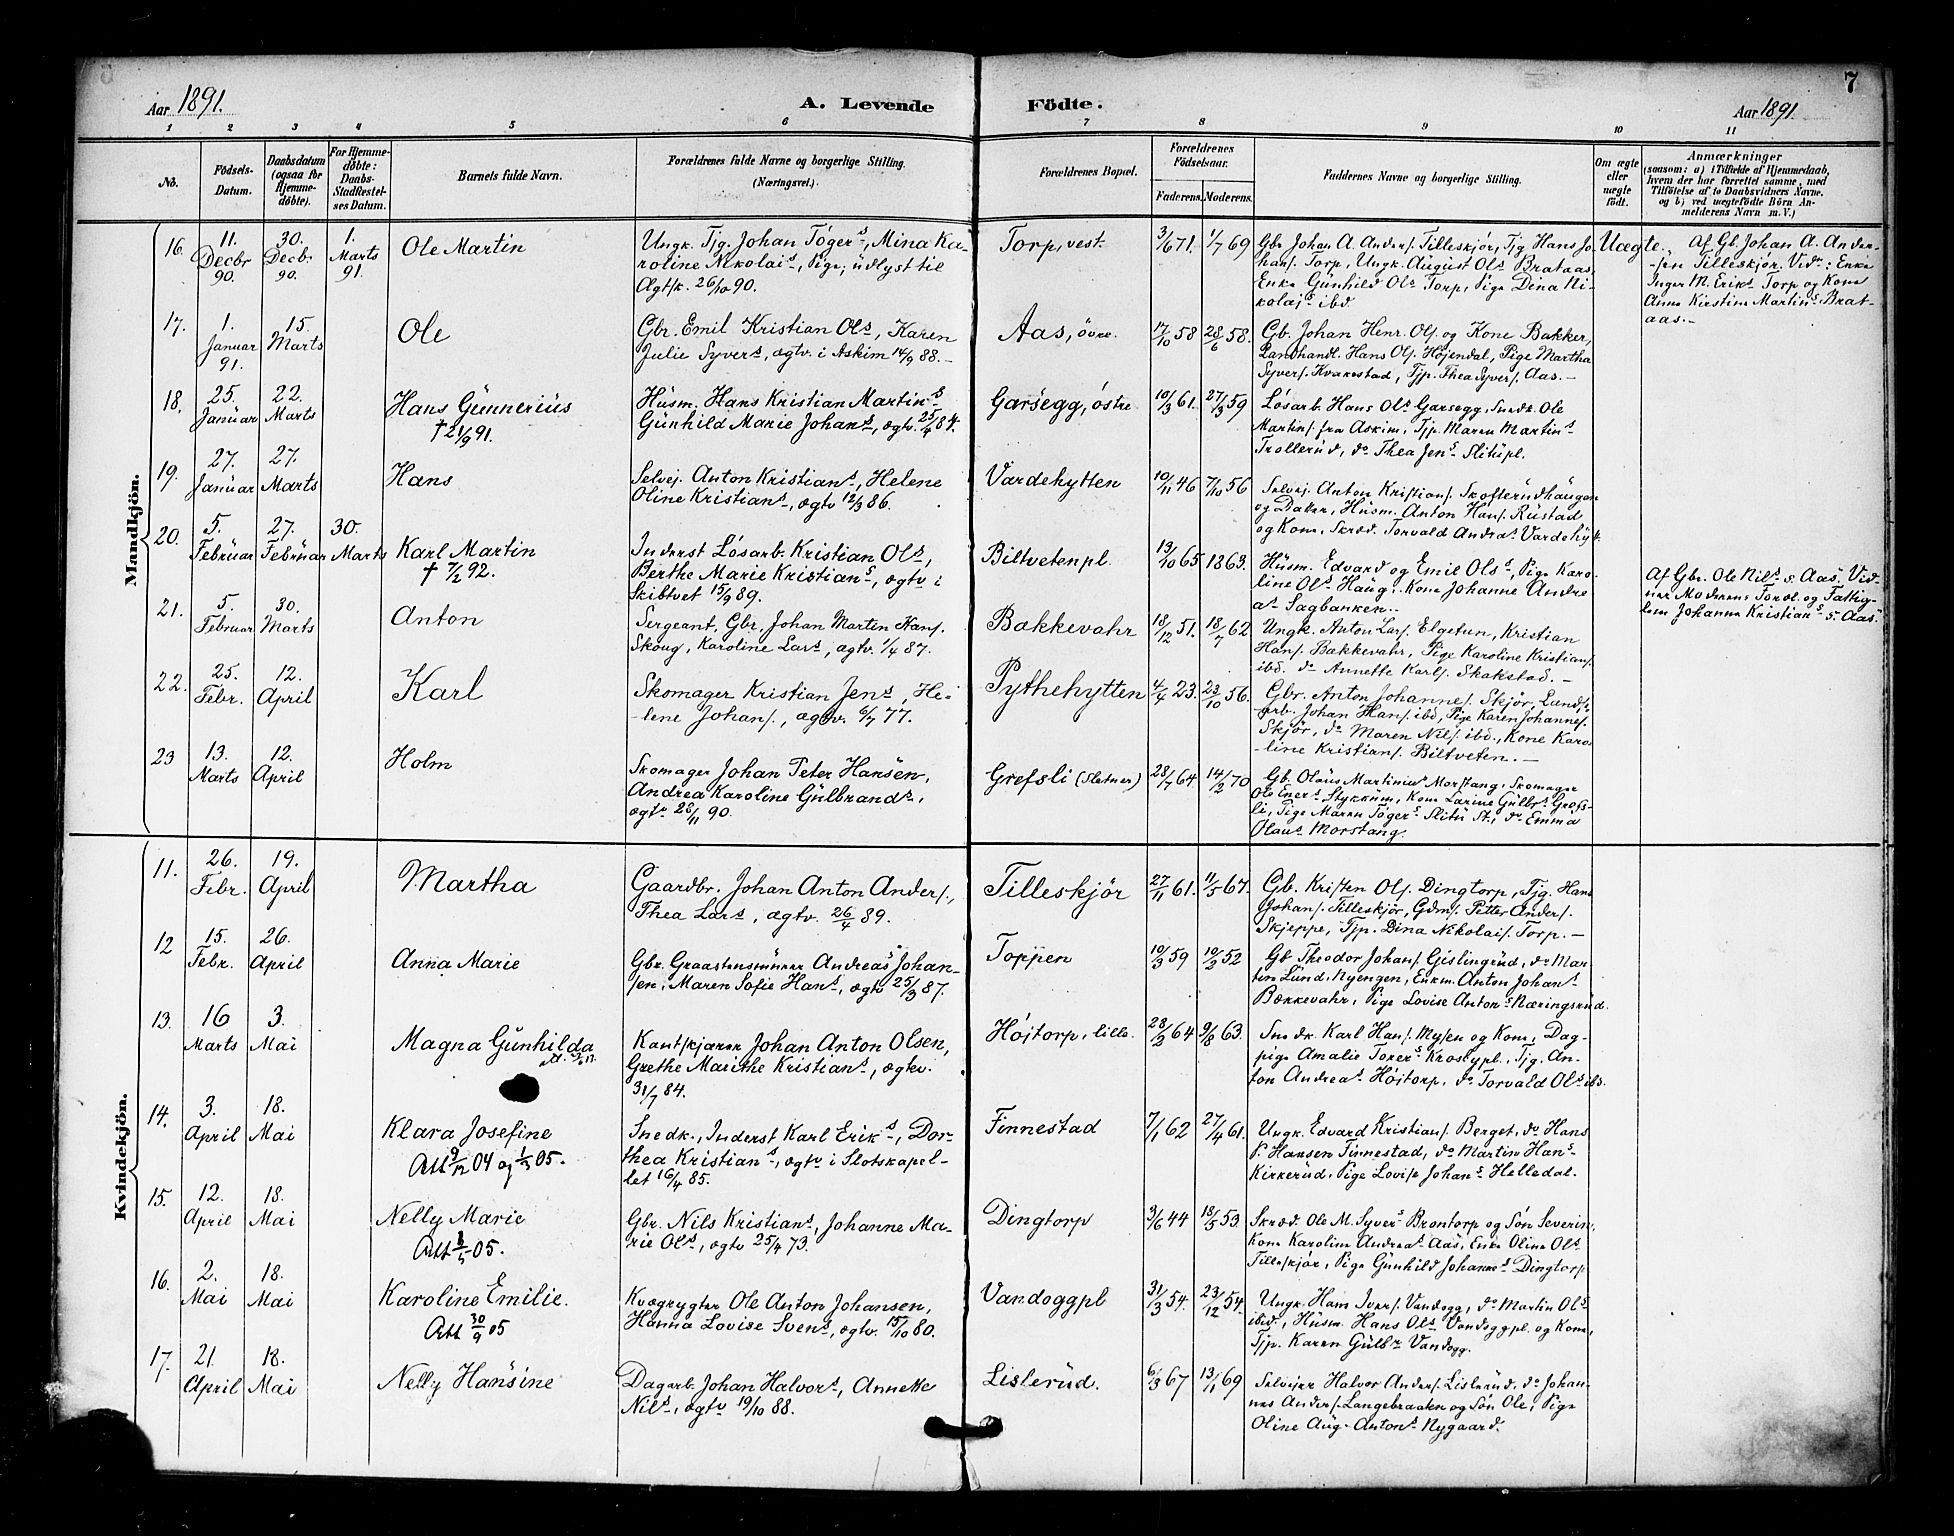 7
Aar 1891.
A. Levende Födte.
Aar 1891.
1 2 3 4 5 6 7 8 9 10 11
No.
Födsels-
Datum.
Daabsdatum
(ogsaa for
Hjemme-
döbte).
For Hjemme-
döbte:
Daabs-
Stadfæstel-
ses Datum.
Barnets fulde Navn.
Forældrenes fulde Navne og borgerlige Stilling.
(Næringsvei.)
Forældrenes Bopæl.
Forældrenes
Födselsaar.
Faderens. Moderens.
Faddernes Navne og borgerlige Stilling.
Om ægte
eller
uægte
födt.
Anmærkninger
(saasom: a) i Tilfælde af Hjemmedaab,
hvem der har forrettet samme, med
Tilföielse af to Daabsvidners Navne.
og b) ved uægtefödte Börn An-
melderens Navn m. V.)
Mandkjön.
16. 11. Decbr 90. 30. Decbr 90. 1. Marts 91.
Ole Martin
Ungk. Tjg. Johan Tógers, Mina Ka-
roline Nikolais, Pige, udlyst til
Ægtsk. 26/10 90.
Torp, vest.
3/6 71. 1/7 69
Gbr. Johan A. Anders. Tilleskjór, Tjg Hans Jo-
hans. Torp, Ungk. August Ols Brataas,
Enke Gunhild Ols Torp, Pige Dina Ni-
kolajs ibd
Uægte.
Af Gb. Johan A. Ander-
-sen Tilleskjór. Vidr: Enke
Inger M. Eriks Torp og Kone
Anna Kirstine Martins, Brat-
aas.-
17. 1. Januar 91. 15. Marts
Ole
Gbr. Emil Kristian Ols, Karen
Julie Syvers, ægtv. i Askim 14/9 88.-
Aas, óvre.
17/10 58 28/6 58.
Gb. Johan Henr. Ols. og Kone Bakker,
Landhandl. Hans Ols. Hójendal, Pige Martha
Syvers. Kvakestad, Tjp. Thea Syvers. Aas.-
18. 25. Januar 22. Marts
Hans Gunnerius
† 21/9 91.
Husm. Hans Kristian Martins
Gunhild Marie Johans, ægtv. 25/4 84.
Garsegg, óstre
10/3 61. 27/3 59
Lósarb. Hans Ols Garsegg, Snedk. Ole
Martins. fra Askim, Tjp. Maren Martins
Trollerud, do Thea Jens Slitupl.
19. 27. Januar 27. Marts
Hans
Selvej. Anton Kristians, Helene
Oline Kristians, ægtv 12/3 86.
Vardehytten
10/11 46 7/10 56
Selvej. Anton Kristians. Skofterudhaugen
og Daler, Husm. Anton Hans. Rustad
og Kone, Skræd. Torvald Andras Vardehyt.
20. 5. Februar 27. Februar 30. Marts
Karl Martin
† 7/2 92.
Inderst Lósarb. Kristian Ols,
Berthe Marie Kristians, ægtv i
Skibtvet 15/9 89.
Biltvetenpl.
13/10 65 1863.
Husm. Edvard og Emil Olss, Pige Karo-
line Ols Haug, Kone Johanne Andre-
as Sagbanken..
Af Gbr. Ole Nils s. Aas. Vid-
ner Moderens Foræl. og Fattig-
lem Johanne Kristians s. Aas.
21. 5. Februar 30. Marts
Anton
Sergeant, Gbr. Johan Martin Hans.
Skoug, Karoline Lars, ægtv. 1/4 87.
Bækkevahr
18/12 51. 18/7 62
Ungk. Anton Lars. Elgetun, Kristian
Hans. Bækkevahr, Pige Karoline Kristians.
ibd. do Annette Karls. Skakstad.-
22. 25. Febr. 12. April
Karl
Skomager Kristian Jens, He-
-lene Johans., ægtv. 6/7 77.
Pythehytten
4/4 23. 23/10 56.
Gbr. Anton Johannes. Skjór, Lands-
arb. Johan Hans. ibd, Pige Karen Johannes.
Skjór, do Maren Nils. ibd., Kone Karo-
-line Kristians. Biltveten.-
23 13. Marts 12. April
Holm
Skomager Johan Peter Hansen,
Andrea Karoline Gulbrands,
ægtv 28/11 90.
Grefsli (Sletner)
28/7 64. 14/2 70
Gb. Olaus Martinius Morstang, Skomager
Ole Eners Stykkum, Kone Larine Gulbrs Grefs-
li, Pige Maren Tógers Slitu St., do Emma
Olaus Morstang.
Kvindekjön.
11. 26. Febr. 19. April
Martha
Gaardbr. Johan Anton Anders.,
Thea Lars, ægtv. 26/4 89.
Tilleskjór
27/11 61. 11/5 67.
Gb. Kristen Ols. Dingtorp, Tjg. Hans
Johans. Tilleskjór, Gdms. Petter Anders.
Skjeppe, Tjp. Dina Nikolais. Torp.-
12 15. Febr. 26. April
Anna Marie
Gbr. Graastensminer Andreas Johan-
sen, Maren Sofie Hans, ægtv 25/3 87.
Toppen
10/3 59 10/2 52
Gb Theodor Johans. Gislingrud, do Mar-
tin Lund, Nyengen, Enkm. Anton Johans
Bækkevahr, Pige Lovise Antons Næringsrud.
13. 16 Marts 3. Mai
Magna Gunhilda
Kantskjærer Johan Anton Olsen,
Grethe Marithe Kristians, ægtv.
31/7 84.
Hójtorp, lille.
28/2 64 9/8 63.
Snedk. Karl Hans. Mysen og Kone, Dag-
pige Amalie Torers Krosbypl., Tjg. An-
ton Andreas Hójtorp, do Torvald Ols ibd.
14. 3. April 18. Mai
Klara Josefine
Att 9/12 04 og 1/3 05.
Snedk., Inderst Karl Eriks, Dor-
thea Kristians, ægtv i Slotskapel-
let 16/4 85.
Finnestad
7/1 62 27/4 61.
Ungk. Edvard Kristians. Berget, do Hans
P. Hansen Finnestad, do Martin Hans
Kirkerud, Pige Lovise Johans Helledal.
15. 12. April 18. Mai
Nelly Marie
Att 1/5 05.
Gbr. Nils Kristians, Johanne Ma-
rie Ols, ægtv 25/4 73.
Dingtorp
3/6 44 18/5 53.
Skræd. Ole M. Syvers Brontorp og Són Severin,
Kone Karoline Andreas Aas, Enke Oline Ols
Tilleskjór, Pige Gunhild Johannes Dingtorp
16. 2. Mai 18. Mai
Karoline Emilie.
Att 30/9 05
Kvægrygter Ole Anton Johansen,
Hanna Lovise Svens, ægtv. 15/10 80.
Vandoggpl
31/3 54. 23/12 54.
Ungk. Hans Ivers. Vandogg, do Martin Ols
ibid, Husm. Hans Ols Vandoggpl. og Kone,
Tjp. Karen Gulbr Vandogg.
17. 21. April 18. Mai
Nelly Hansine
Dagarb. Johan Halvors, Annette
Nils, ægtv 19/10 88.
Lislerud.
6/3 67 13/1 69
Selvejer Halvor Anders. Lislerud, do Johan-
nes Anders. Langebraaten og Són Ole, Pige
Oline Aug. Antons Nygaard.